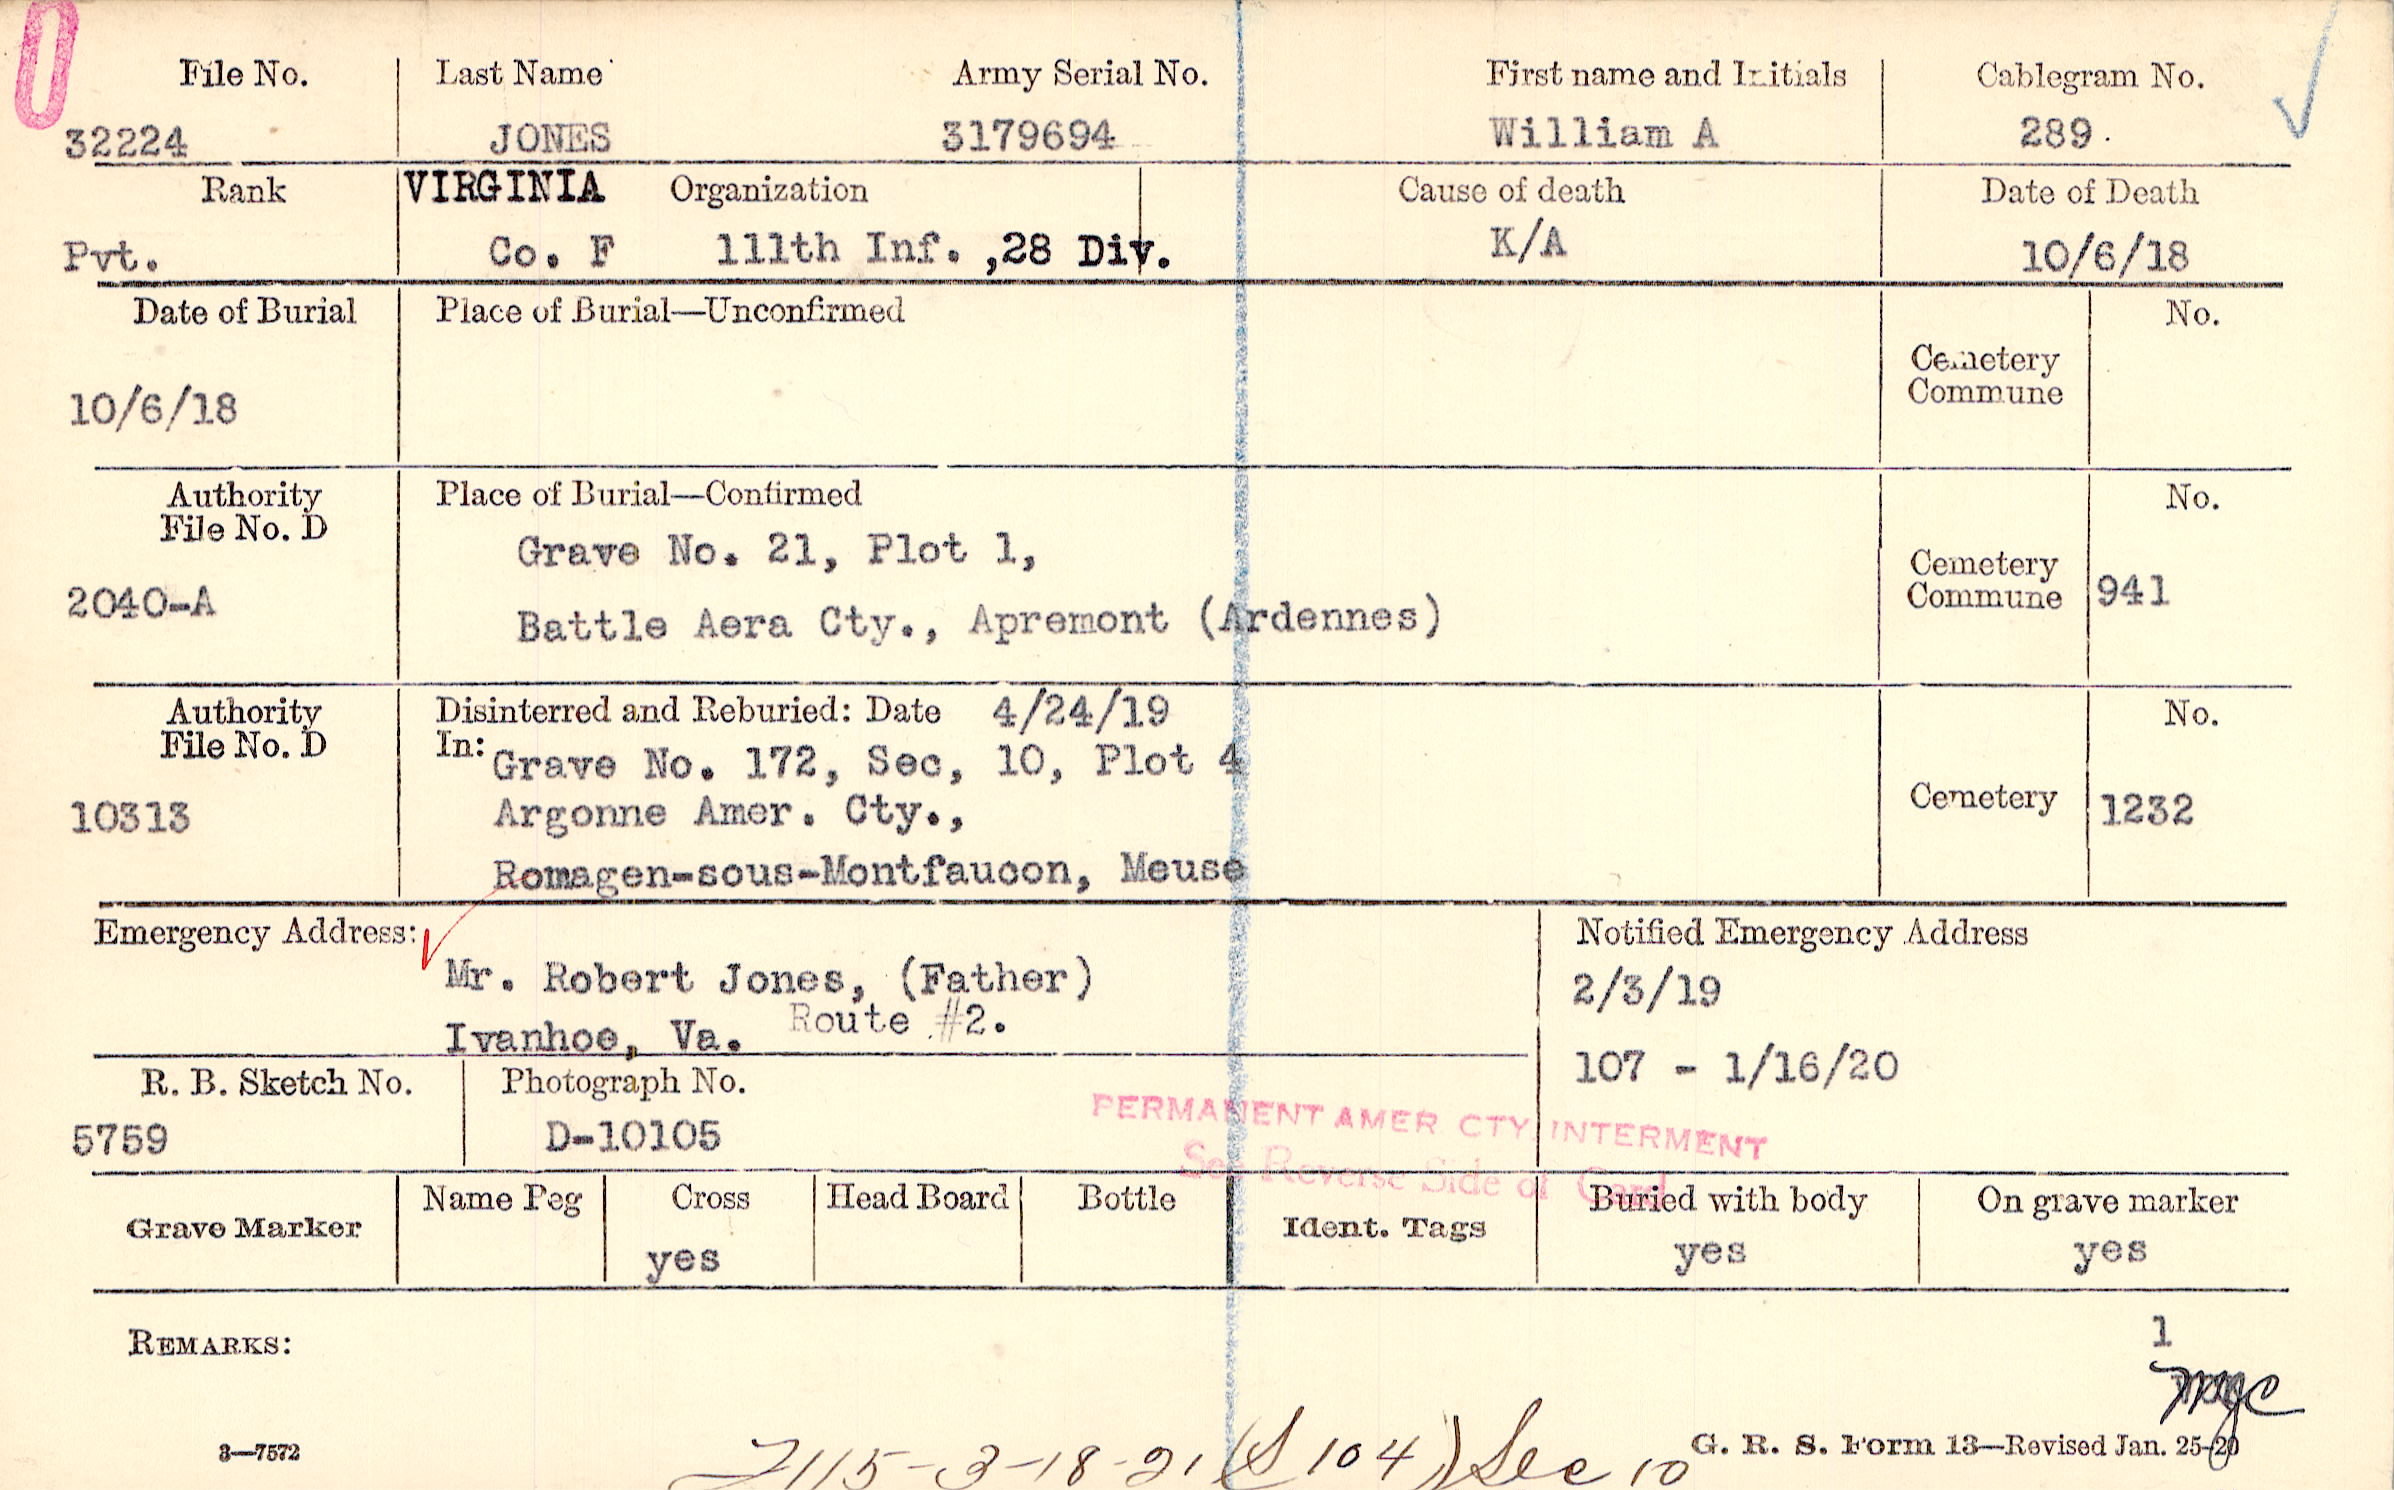 0
File No. Last Name Army Serial No. First name and Initials Cablegram No.
32224 JONES 3179694 William A 289.
Rank VIRGINIA Organization Cause of death Date of Death
Pvt. Co. F 111th Inf. ,28 Div. K/A 10/6/18
Date of Burial Place of Burial—Unconfirmed No.
Cemetery
Commune
10/6/18
Authority Place of Burial—Confirmed No.
File No. D
Grave No. 21, Plot 1,
Cemetery
Commune 941
2040-A
Battle Aera Cty., Apremont (Ardennes)
Authority Disinterred and Reburied: Date 4/24/19 No.
File No. D In: Grave No. 172, Sec, 10, Plot 4
10313 Argonne Amer. Cty., Cemetery 1232
Romagen-sous-Montfaucon, Meuse
Emergency Address: Notified Emergency Address
Mr. Robert Jones, (Father) 2/3/19
Route #2.
Ivanhoe, Va.
107 - 1/16/20
R. B. Sketch No. Photograph No.
5759 D-10105
PERMANENT AMER CTY INTERMENT
See Reverse Side of Card
Grave Marker Name Peg Cross Head Board Bottle Ident. Tags Buried with body On grave marker
yes yes yes
REMARKS: 1
3—7572
G. R. S. Form 13—Revised Jan. 25-20
115-3-18-21 (S 104) Sec 10